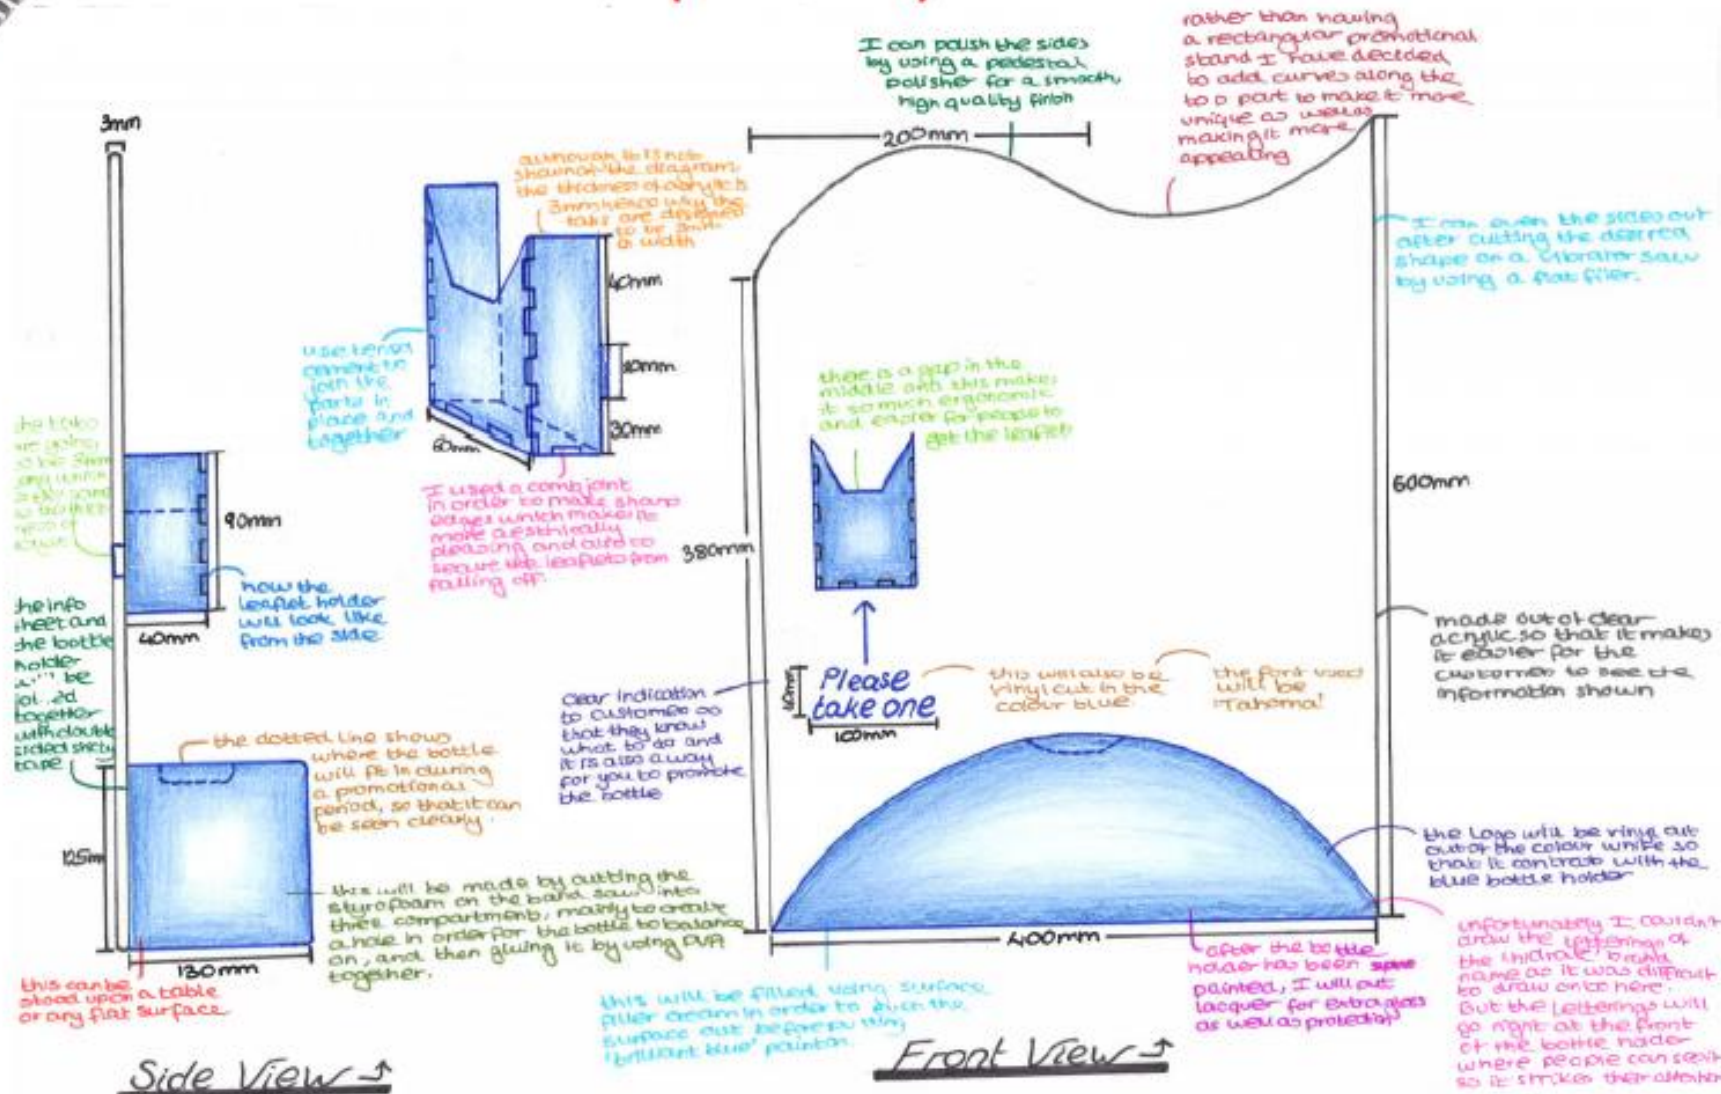 3mm
I can polish the sides
by using a pedestal
polisher for a smooth,
high quality finish
rather than having
a rectangular promotional
stand I have decided
to add curves along the
top part to make it more
unique as well as
making it more
appealing
200mm
although it is not
shown on the diagram,
the thickness of acrylic is
3mm hence why the
tabs are designed
to be 3mm
in width
I can even the sides out
after cutting the desired
shape on a vibrator saw
by using a flat filer.
40mm
20mm
30mm
60mm
use tensol
cement to
join the
parts in
place and
together
there is a gap in the
middle and this makes
it so much ergonomic
and easier for people to
get the leaflet
I used a comb joint
in order to make sharp
edges which makes it
more aesthically
pleasing and also to
secure the leaflets from
falling off.
380mm
600mm
90mm
40mm
how the
leaflet holder
will look like
from the side
he info
heet and
he bottle
holder
be
together
with double
sided
tape
made out of clear
acrylic so that it makes
it easier for the
customer to see the
information shown
clear indication
to customer so
that they know
what to do and
it is also a way
for you to promote
the bottle
Please
take one
100mm
this will also be
vinyl cut in the
colour blue.
the font used
will be
'Tahoma'
the dotted line shows
where the bottle
will fit in during
a promotional
period, so that it can
be seen clearly.
125m
130mm
this will be made by cutting the
styrofoam on the band saw into
three compartments, mainly to create
a hole in order for the bottle to balance
on, and then gluing it by using PVA
together.
this can be
stood upon a table
or any flat surface
the Logo will be vinyl cut
out of the colour white so
that it contrasts with the
blue bottle holder
400mm
this will be filled using surface
filler cream in order to the
surface out before putting
'brilliant blue' paint on.
after the bottle
holder has been
painted, I will put
lacquer for extra gloss
as well as protection
unfortunately I couldn't
draw the Letterings of
the brand
name as it was difficult
to draw onto here.
But the Letterings will
go right at the front
of the bottle holder
where people can see it
so it strikes their attention
Side View
Front View